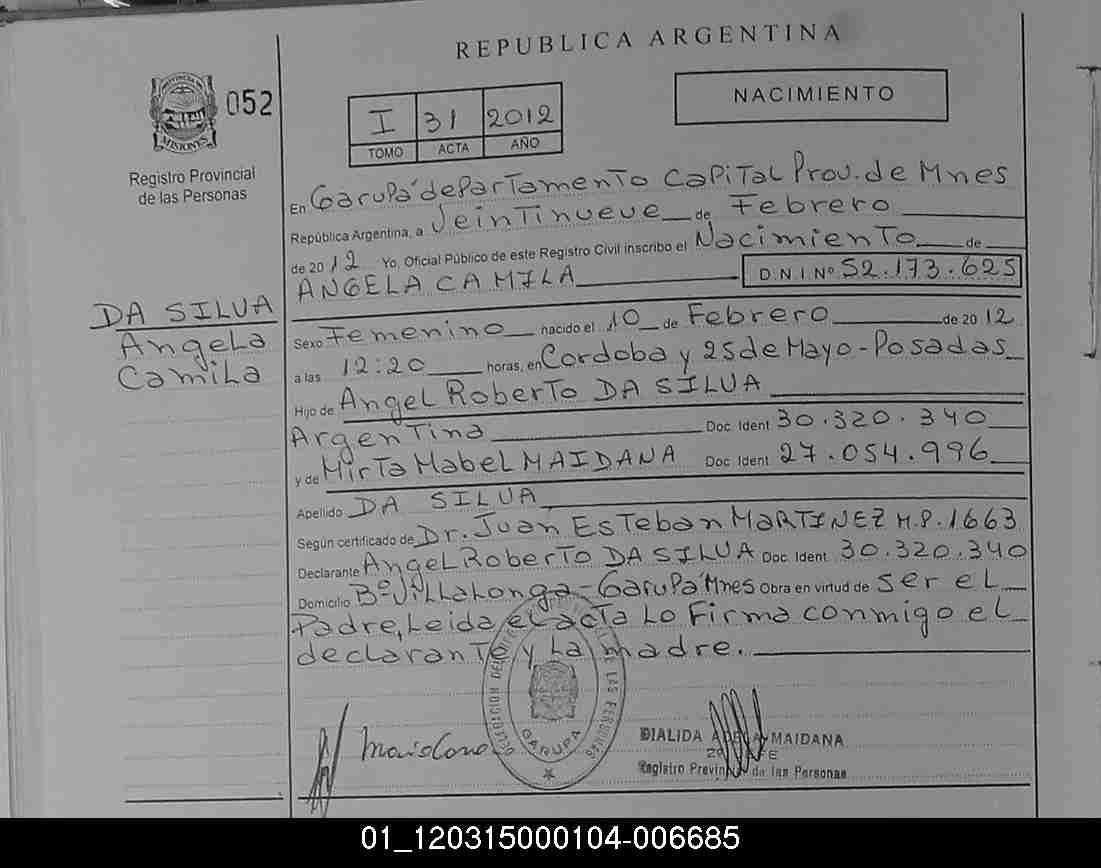 REPUBLICA ARGENTINA
PROVINCIA DE MISIONES
052
Registro Provincial
de las Personas
I 31 2012
TOMO ACTA AÑO
NACIMIENTO
En Garupá departamento Capital Prov. de Mnes
República Argentina, a Veintinueve de Febrero
de 2012 Yo, Oficial Público de este Registro Civil inscribo el Nacimiento de
ANGELA CAMILA D.N.I. Nº 52.173.625
DA SILVA
Angela
Camila
Sexo Femenino nacido el 10 de Febrero de 2012
a las 12:20 horas, en Cordoba y 25 de Mayo - Posadas
Hijo de Angel Roberto DA SILVA
Argentina Doc. Ident 30.320.340
y de Mirta Mabel MAIDANA Doc. Ident 27.054.996
Apellido DA SILVA
Según certificado de Dr. Juan Esteban MARTINEZ M.P. 1663
Declarante Angel Roberto DA SILVA Doc. Ident. 30.320.340
Domicilio Bº Villalonga - Garupá Mnes Obra en virtud de ser el
Padre, Leida el acta lo firma conmigo el
declarante y la madre.
DE LAS PERSONAS
GARUPA
DIALIDA MAIDANA
Registro Provin de las Personas
01_120315000104-006685